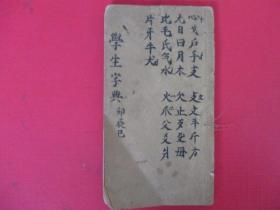 心戈戶手支 攴文斗斤方
无日曰月木 欠止歹殳毋
比毛氏气水 火爪父爻爿
片牙牛犬
學生字典 卯辰巳